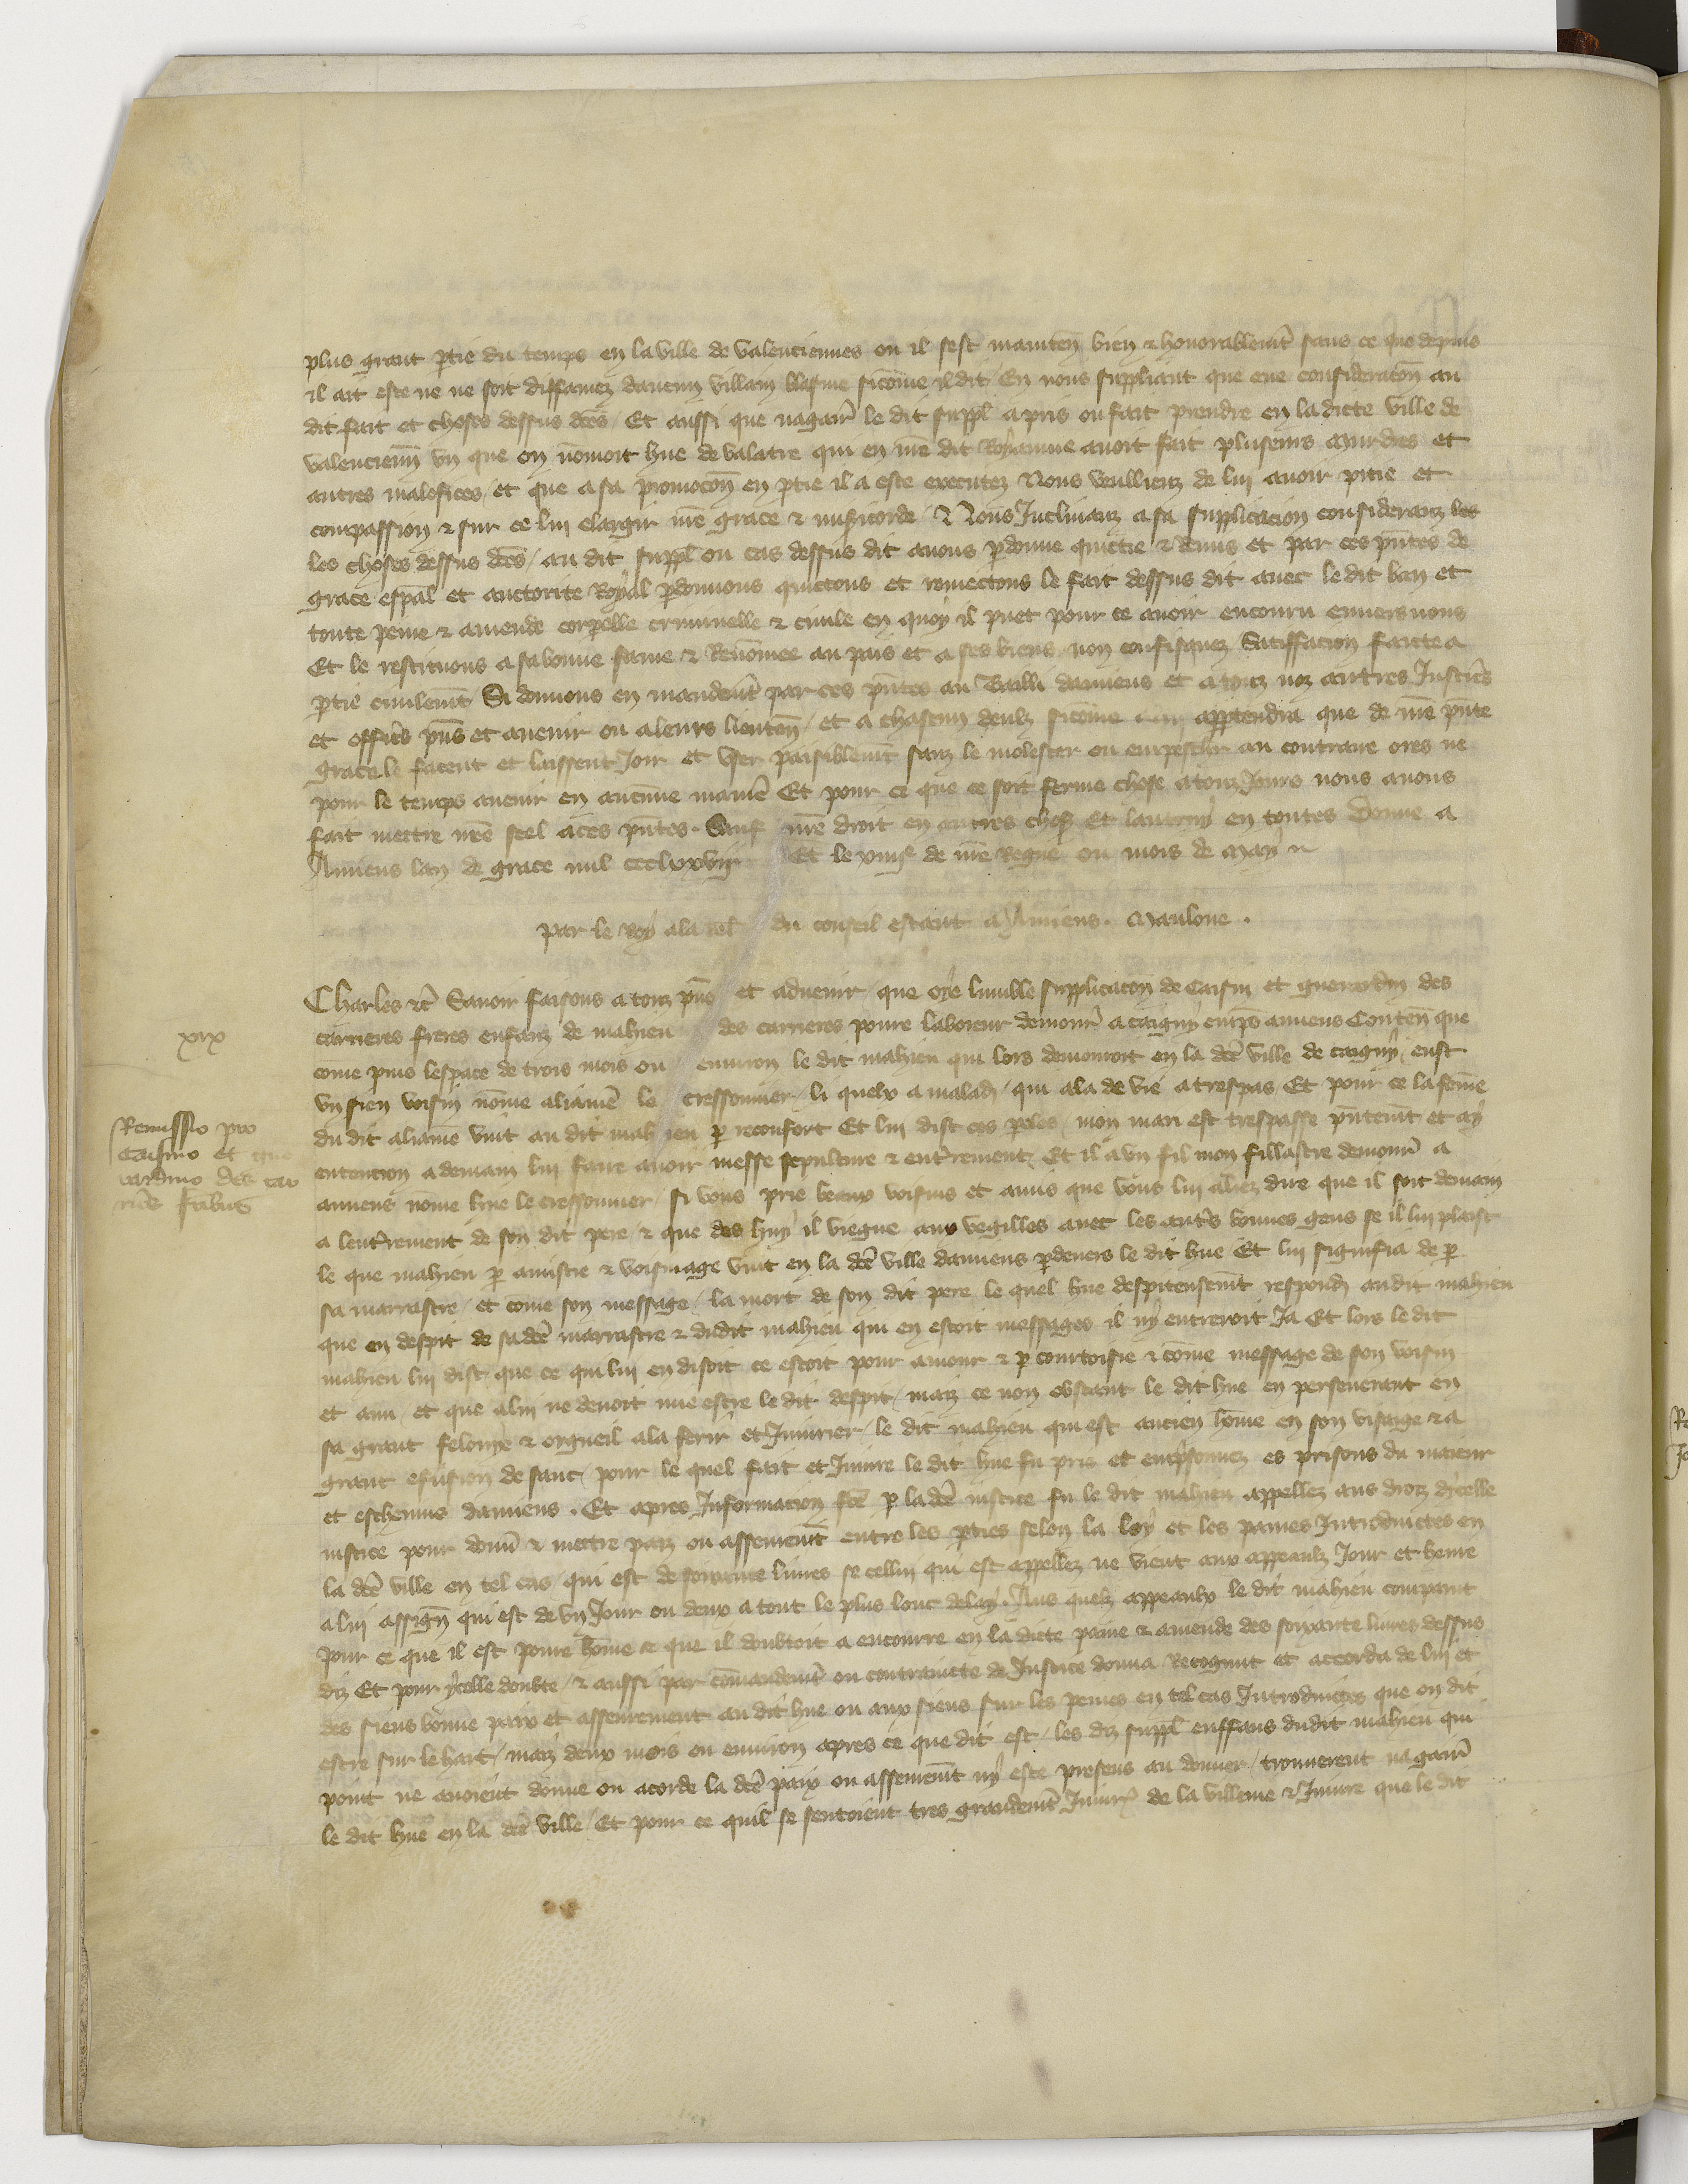 plus grant p̱tie du temps en la ville de valenciennes ou il sest mainten̄ bien & honorablem̄t sans ce que depuis
il ait este ne ne soit diffamez daucun villain blasme sicōme il dit En nous suppliant que eue consideracōn au
dit fait et choses dessus dc̄es / Et aussi que nagair̄ le dit suppl̄ a pris ou fait prendre en la dicte ville de
valencienn̄ vn que on nōmoit hue de valatre qui en nr̄e dit Royaume auoit fait pluseurs murdres et
autres malefices / et que a sa promocōn en p̱tie il a este executez Nous veullienz de lui auoir pitie et
compassion & sur ce lui elargir nr̄e grace & mis̄icorde / & Nous Inclinanz a sa supplicacion consideranz les
les choses dessus dc̄es / au dit suppl̄ ou cas dessus dit auons p̱donne quictie & remis et par ces pn̄tes de
grace esp̄al et auctorite Royal p̱donnons quictons et remectons le fait dessus dit auec le dit ban et
toute peine & amende corp̱elle criminelle & ciuile en quoy il puet pour ce auoir encouru enuers nous
Et le restituons a sa bonne fame & Renōmee au pais et a ses biens non confisquez Satiffacion faicte a
p̱tie ciuilem̄t Si donnons en mandem̄t par ces pn̄tes au Bailli damiens et a touz noz autres Justic̄s
et offic̄s pn̄s et auenir ou a leurs lieuten̄ / et a chascun deulz sicōme app̱tendra que de nr̄e pn̄te
grace le facent et laissent Joir et vser paisiblem̄t sanz le molester ou empeschier au contraire ores ne
pour le temps auenir en aucune manie᷑ Et pour ce que ce soit ferme chose a touz Jours nous auons
fait mettre nr̄e seel a ces pn̄tes. Sauf nr̄e droit en autres choses Et lautruy en toutes Donne a
Amiens lan de grace mil ccclxxvij Et le xiiije de nr̄e Regne ou mois de May
par le Roy a la rel̄ du conseil estant a Amiens. Mauloue.
Charles &c̄ Sauoir faisons a touz pn̄s et aduenir / que oye lumble supplicacōn de Caisin et guerardin des
carrieres freres enfanz de mahieu des carrieres poure laboreur demour̄ a caigny emps amiens Conten̄ que
cōme puis lespace de trois mois ou enuiron le dit mahieu qui lors demouroit en la dc̄e ville de caigny / eust
vn sien voisin nōme aliamē le cressonnier / li quelx a malady / qui ala de vie a trespas Et pour ce la feme
du dit aliamē vint au dit mahieu p̱ reconfort Et lui dist ces p̱oles / mon mari est trespasse pn̄tem̄t et ay
entencion a demain lui faire auoir messe sepulture & enterrement Et il a vn fil mon fillastre demour̄ a
amiens nōme hue le cressonnier / si vous prie beaux voisins et amis que vous lui aliez dire que il soit demain
a lenterrement de son dit pere / & que des huy il viegne aux vegilles auec les autr̄s bonnes gens se il lui plaist
le que mahieu p̱ amistie & voisinage vint en la dc̄e ville damiens p̱deuers le dit hue Et lui signifia de p̱
sa marrastre / et cōme son message / la mort de son dit pere le quel hue despiteusem̄t respondy au dit mahieu
que en despit de sa dc̄e marrastre & dudit mahieu qui en estoit messages il ny entreroit Ja Et lors le dit
mahieu lui dist que ce qui lui en disoit ce estoit pour amour & p̱ courtoisie & cōme message de son voisin
et ami / et que a lui ne deuoit mie estre le dit despit / maiz ce non obstant le dit hue en perseuerant en
sa grant felonie & orgueil ala ferir et Iniurier / le dit mahieu qui est ancien hōme en son visaige & a
grant efusion de sanc / pour le quel fait et Iniure le dit hue fu pris et emprisonnez es prisons du maieur
et escheuins damiens. Et apres Informacion fc̄e p̱ la dc̄e iustice fu le dit mahieu appellez aus droiz dicelle
iustice pour donn̄ & mettre paiz ou assereme᷑nt entre les p̱ties selon la loy et les paines Introduictes en
la dc̄e ville en tel cas qui est de soixante liures se cellui qui est appellez ne vient aux appeaulz Jour et heure
a lui assign̄ qui est de vn Jour ou deux a tout le plus lonc delay. Aus quelz appeaulx le dit mahieu comparut
pour ce que il est poure hōme & que il doubtoit a encourre en la dicte paine & amende des soixante liures dessus
diz Et pour ycelle doubte / & aussi par cōmandem̄t ou contraincte de Justice donna Recognut et accorda de lui et
des siens bonne paix et asseurement au dit hue ou aux siens sur les peines en tel cas Introduictes que on dit
estre sur le hart / maiz deux mois ou enuiron apres ce que dit est / les diz suppl̄ enffans dudit mahieu qui
point ne auoient donne ou acorde la dc̄e paix ou asseurem̄t ny este presens au donner / trouuerent nagair̄
le dit hue en la dc̄e ville / Et pour ce quil se sentoient tres grandem̄t Iniur̄ de la villenie & Iniure que le dit
xix
Remissio pro
Caisino et gue
rardino des car
rier̄s fr̄ibus